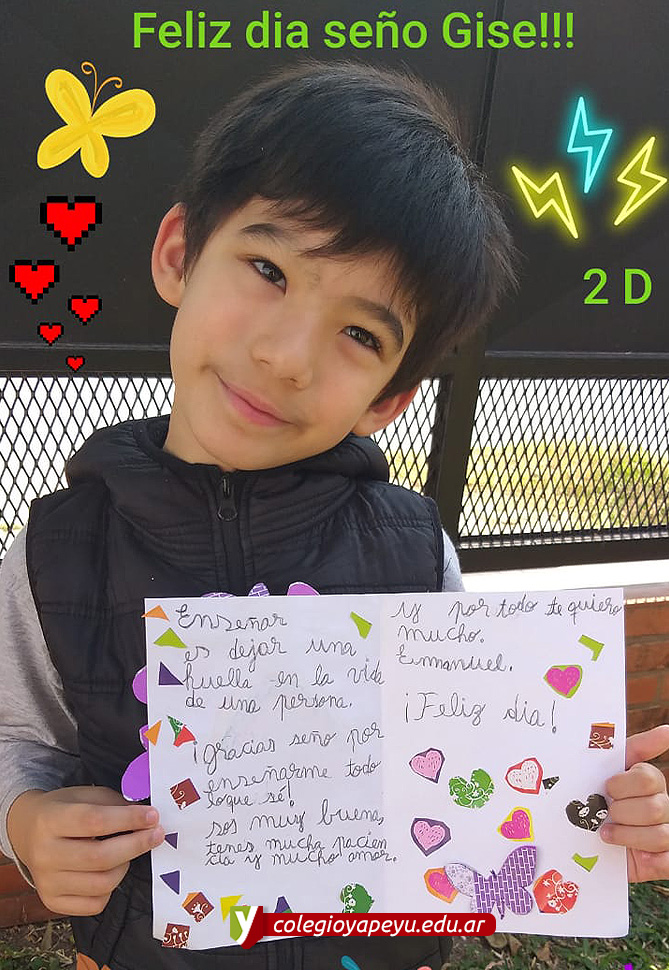 Feliz dia seño Gise!!!
2 D
Enseñar
es dejar una
huella en la vida
de una persona.
¡gracias seño por
enseñarme todo
lo que sé!
sos muy buena,
tenes mucha pacien
cia y mucho amor.
y por todo te quiero
mucho.
Emmanuel.
¡Feliz dia!
y colegioyapeyu.edu.ar